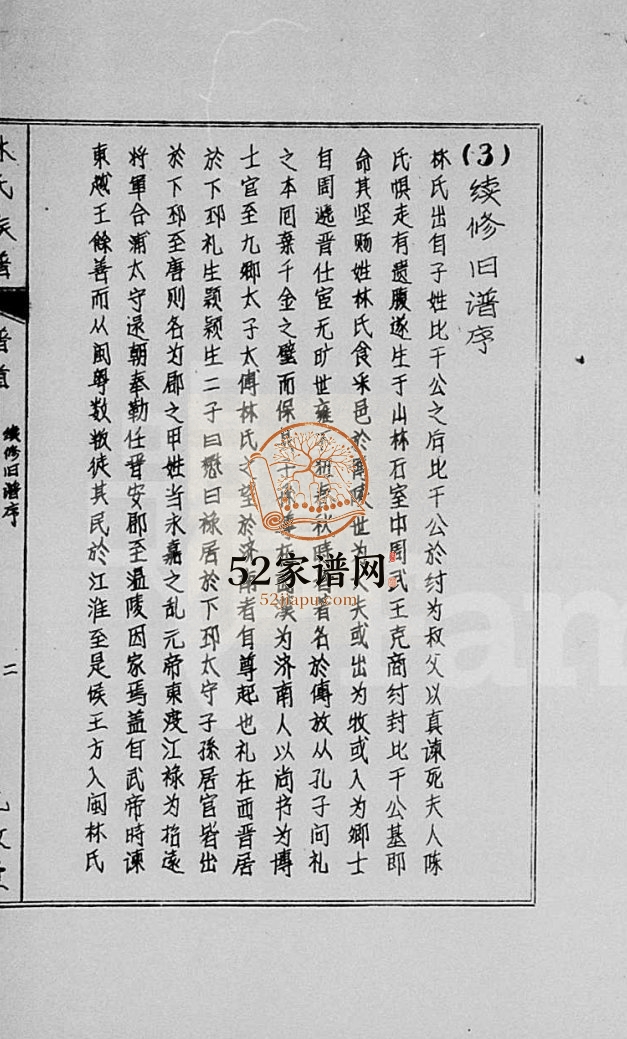 (3) 续修旧谱序
林氏出自子姓比干公之后比干公於纣为叔父以真谏死夫人陈
氏惧走有遗腹遂生于山林石室中周武王克商纣封比干公墓即
命其坚赐姓林氏食采邑於 世为 夫或出为牧或入为卿士
自周逸晋仕宦无旷世 春秋時 着名於傅放从孔子问礼
之本囘棄千金之璧而保 孫 漢为济南人以尚书为博
士官至九卿太子太傅林氏之望於济南者自尊起也礼在西晋居
於下邳礼生颖颖生二子曰懋曰禄居於下邳太守子孫居官皆出
於下邳至唐则名为郡之甲姓当永嘉之乱元帝東渡江禄为招遠
将軍合浦太守追朝奉勒任晋安郡至温陵因家焉盖自武帝時谏
東越王餘善而从闽粤数叛徒其民於江淮至是侯王方入闽林氏
林氏族谱
谱首
续修旧谱序
二
52家谱网
52jiapu.com